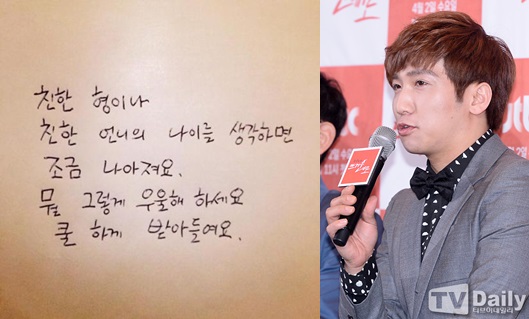 친한 형이나
친한 언니의 나이를 생각하면
조금 나아져요.
뭘 그렇게 우울해 하세요
쿨 하게 받아들여요.
4월 2수요일
TV Daily
티브이데일리